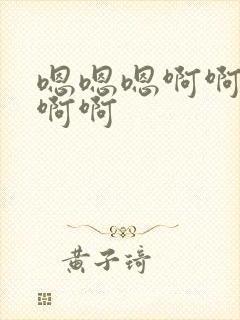 嗯嗯嗯啊啊
啊啊
黄子琦